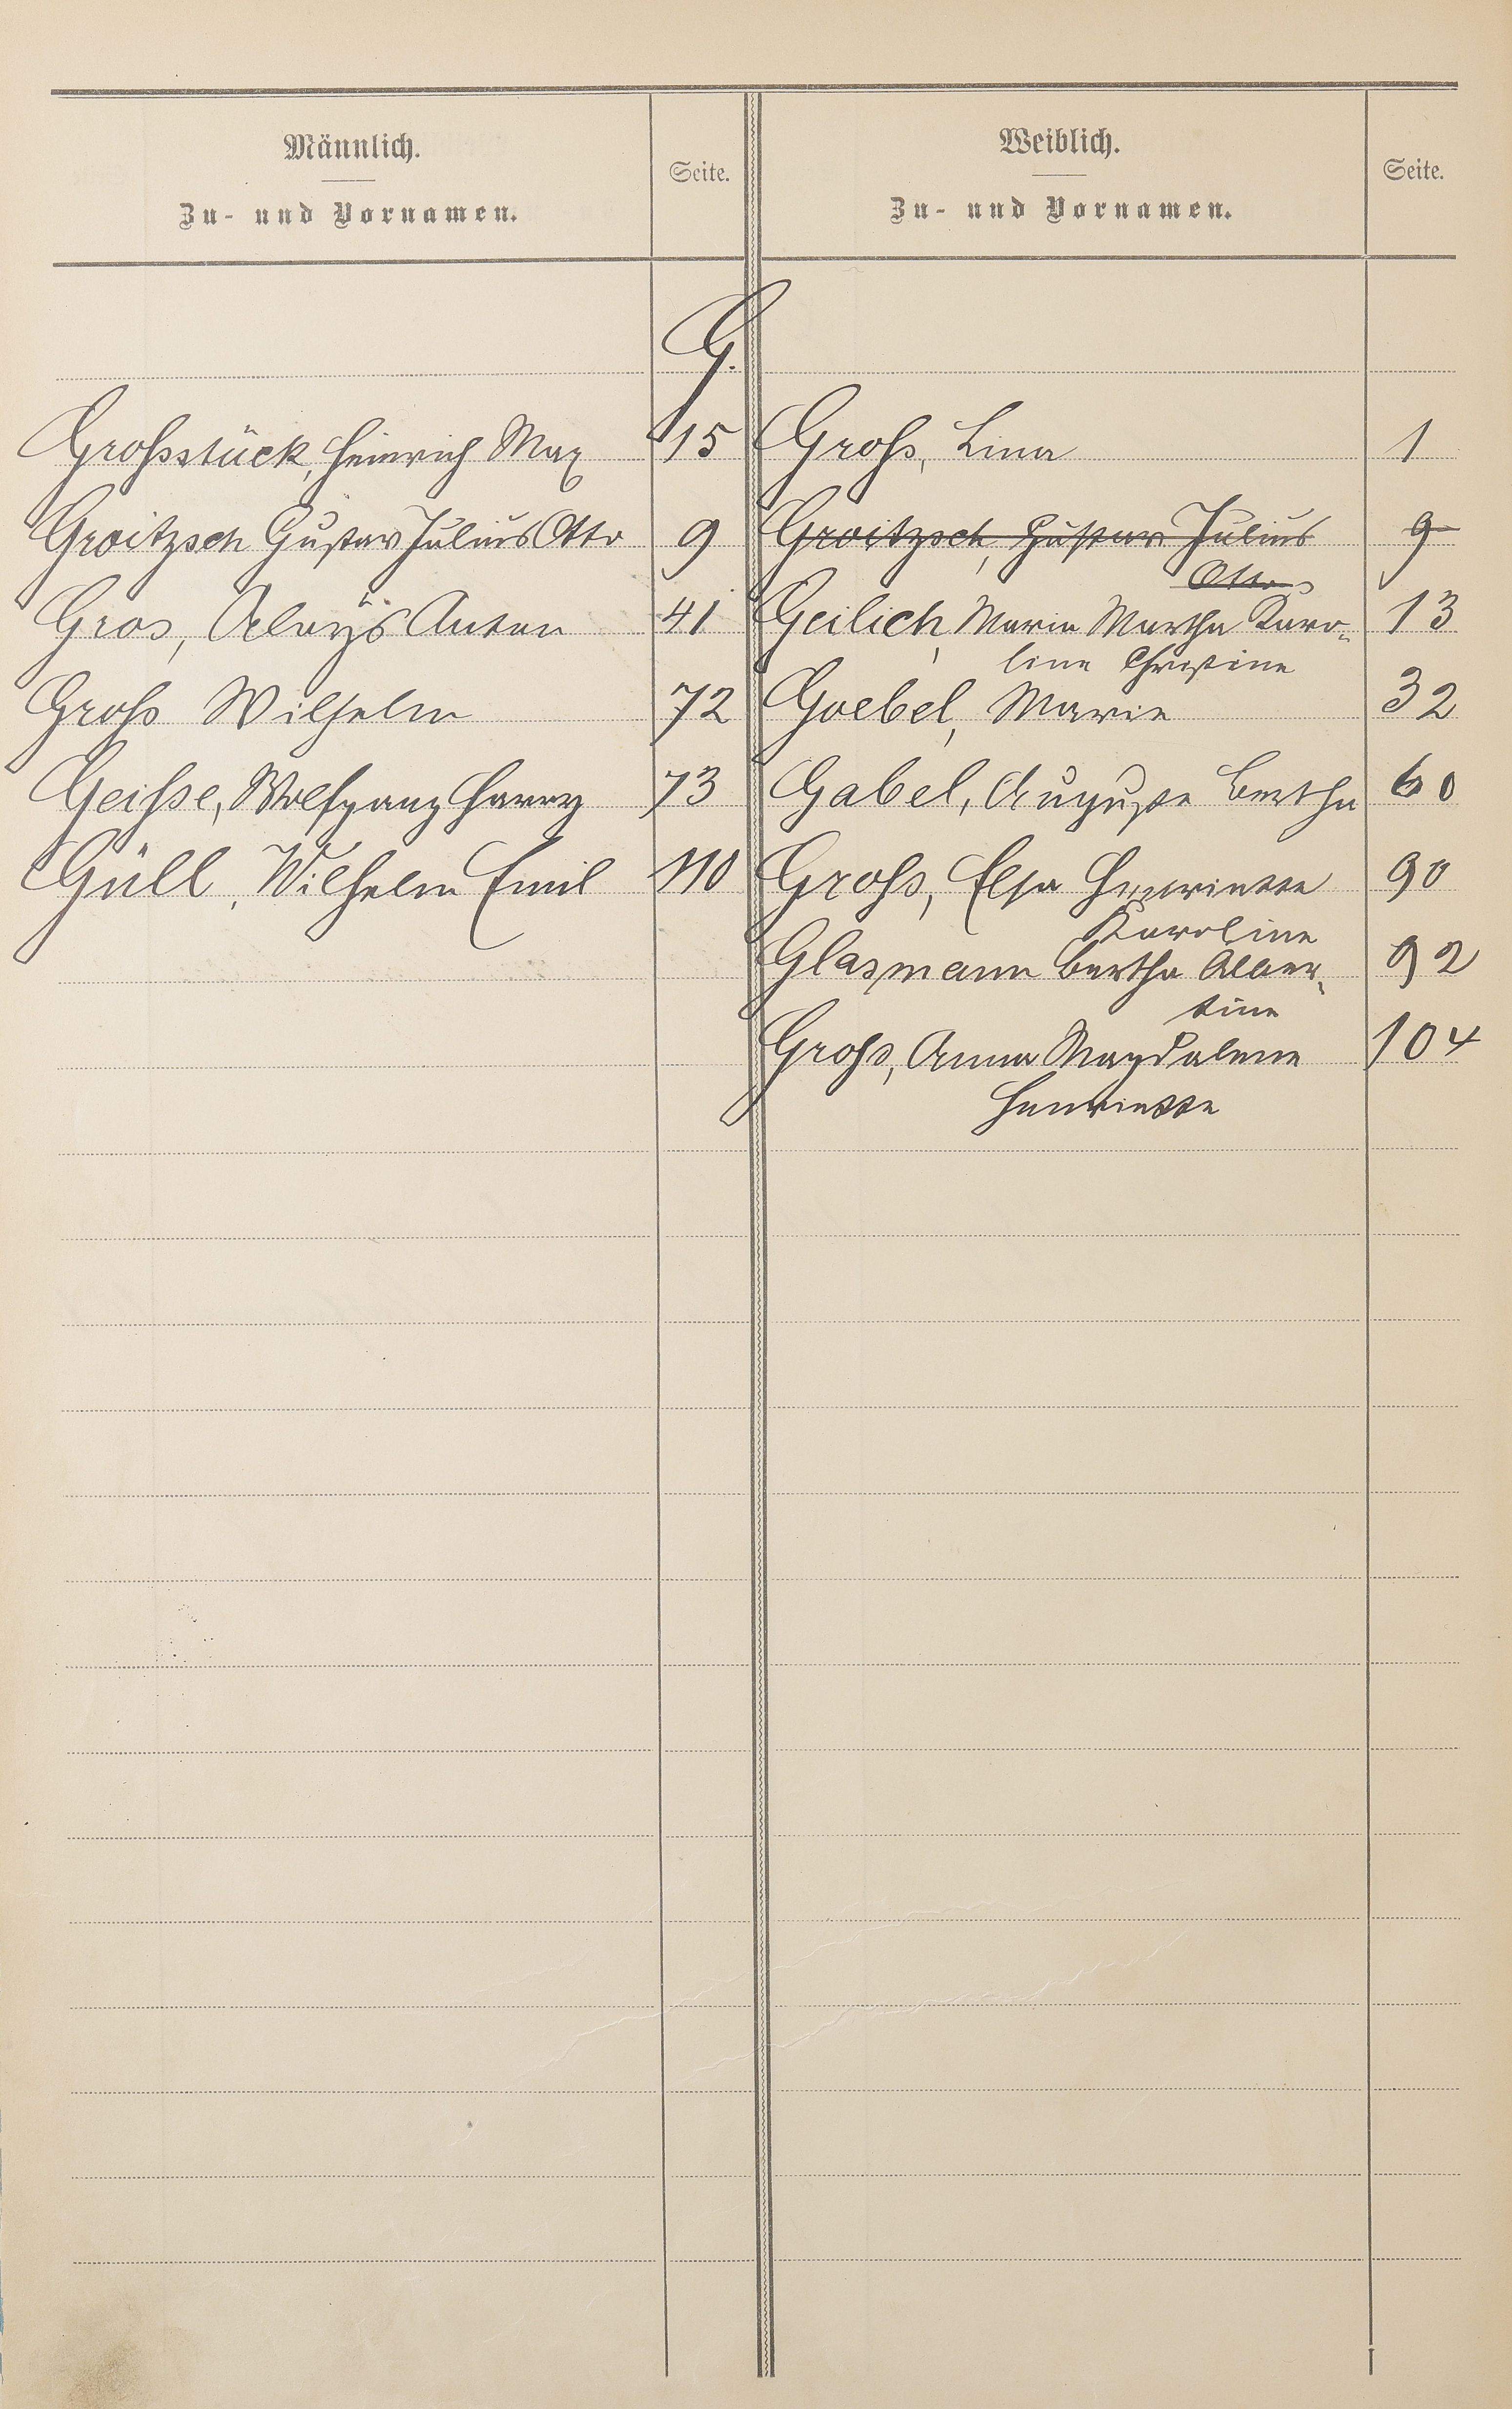 Männlich.
Zu- und Vornamen.
Seite.
Weiblich.
Zu- und Vornamen.
Seite.
G.
Großstück, Heinrich Max 15
Groitzsch Gustav Julius Otto 9
Gros, Aloÿs Anton 41
Groß Wilhelm 72
Geiße, Wolfgang Harry 73
Güll, Wilhelm Emil 110
Groß, Lina 1
Groitzsch, Gustav Julius 9
Otto
Geilich, Marie Martha Karo-
line Christine 13
Goebel, Marie 32
Gabel, Auguste Bertha 60
Groß, Elsa Henriette 90
Karoline
Glasmann Bertha Alber-
tine 92
Groß, Anna Magdalena 104
Henriette